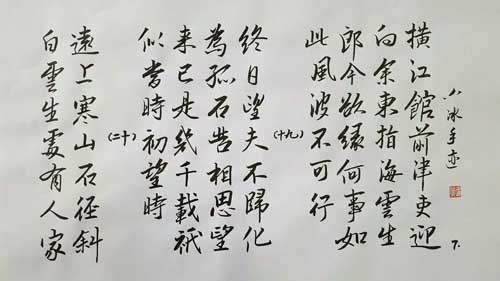 小冰手迹
7.
橫江館前津吏迎
向余東指海雲生
郎今欲緣何事如
此風波不可行
(十九)
終日望夫不歸化
為孤石苦相思望
来已是幾千載祇
似當時初望時
(二十)
遠上寒山石徑斜
白雲生處有人家